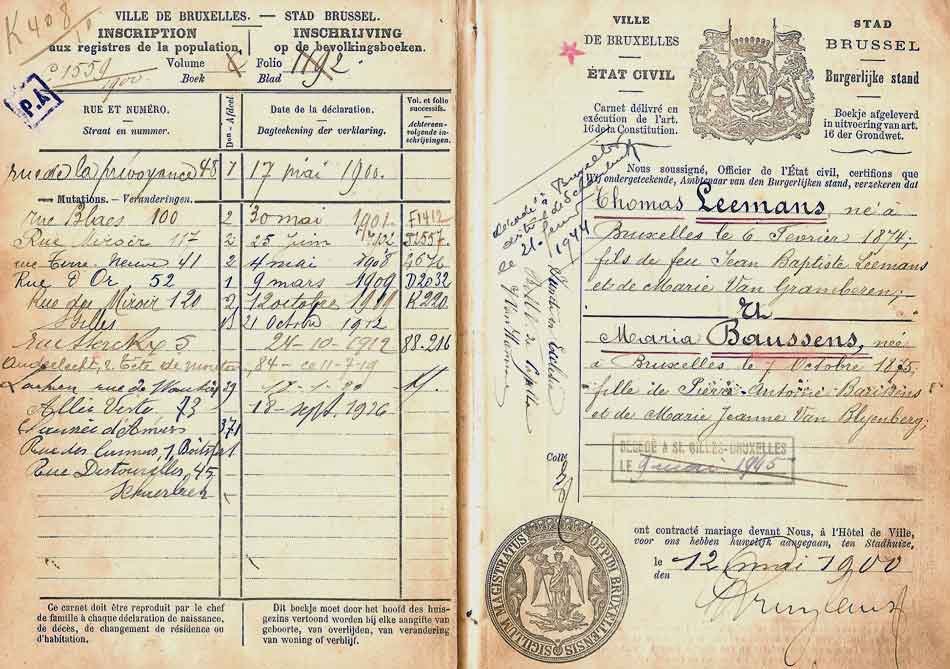 K 408
VILLE DE BRUXELLES. — STAD BRUSSEL.
INSCRIPTION
aux registres de la population.
INSCHRIJVING
op de bevolkingsboeken.
1559
1900
Volume
Boek
Folio
Blad
1892
P.A
RUE ET NUMÉRO.
Straat en nummer.
Don - Afdeel
Date de la déclaration.
Dagteekening der verklaring.
Vol. et folio
successifs.
Achtereen-
volgende in-
schrijvingen.
rue de la prévoyance 48 1 17 mai 1900.
Mutations. - Veranderingen.
rue Blaes 100 2 30 mai 1901 F1412
Rue Miroir 117 2 25 juin 2557
rue Terre Neuve 41 2 4 mai 1908 2676
Rue d'Or 52 1 9 mars 1909 D2032
Rue du Miroir 120 2 12 octobre 1911 R220
St Gilles 13 21 Octobre 1912
rue Sterckx 5 24-10-1912 88-216
Anderlecht, 2 Tête de mouton, 84 - ce 11-7-19
Laeken, rue de 29
Allée Verte, 73 18 sept. 1926
Chaussée d'Anvers 371
Rue des Cannas, 1, Boitsfort
Rue Destouvelles, 45
Schaerbeek
Ce carnet doit être reproduit par le chef
de famille à chaque déclaration de naissance,
de décès, de changement de résidence ou
d'habitation.
Dit boekje moet door het hoofd des huis-
gezins vertoond worden bij elke aangifte van
geboorte, van overlijden, van verandering
van woning of verblijf.
VILLE
DE BRUXELLES
ÉTAT CIVIL
Carnet délivré en
exécution de l'art.
16 de la Constitution.
STAD
BRUSSEL
Burgerlijke stand
Boekje afgeleverd
in uitvoering van art.
16 der Grondwet.
Nous soussigné, Officier de l'État civil, certifions que
Wij ondergeteekende, Ambtenaar van den Burgerlijken stand, verzekeren dat
Thomas Leemans, né à
Bruxelles le 6 Fevrier 1874;
fils de feu Jean Baptiste Leemans
et de Marie Van Gramberen;
Et
Maria Baussens, née
à Bruxelles le 7 Octobre 1875,
fille de Pierre Antoine Baussens
et de Marie Jeanne Van Blyenberg;
décédé à Bruxelles
21
1944
DÉCÉDÉ A ST. GILLES-BRUXELLES
LE 9 mai 1945
ont contracté mariage devant Nous, à l'Hôtel de Ville,
voor ons hebben huwelijk aangegaan, ten Stadhuize,
le
den
12 mai 1900
SIGILLUM MAGISTRATUS OPPIDI BRUXELLENSIS